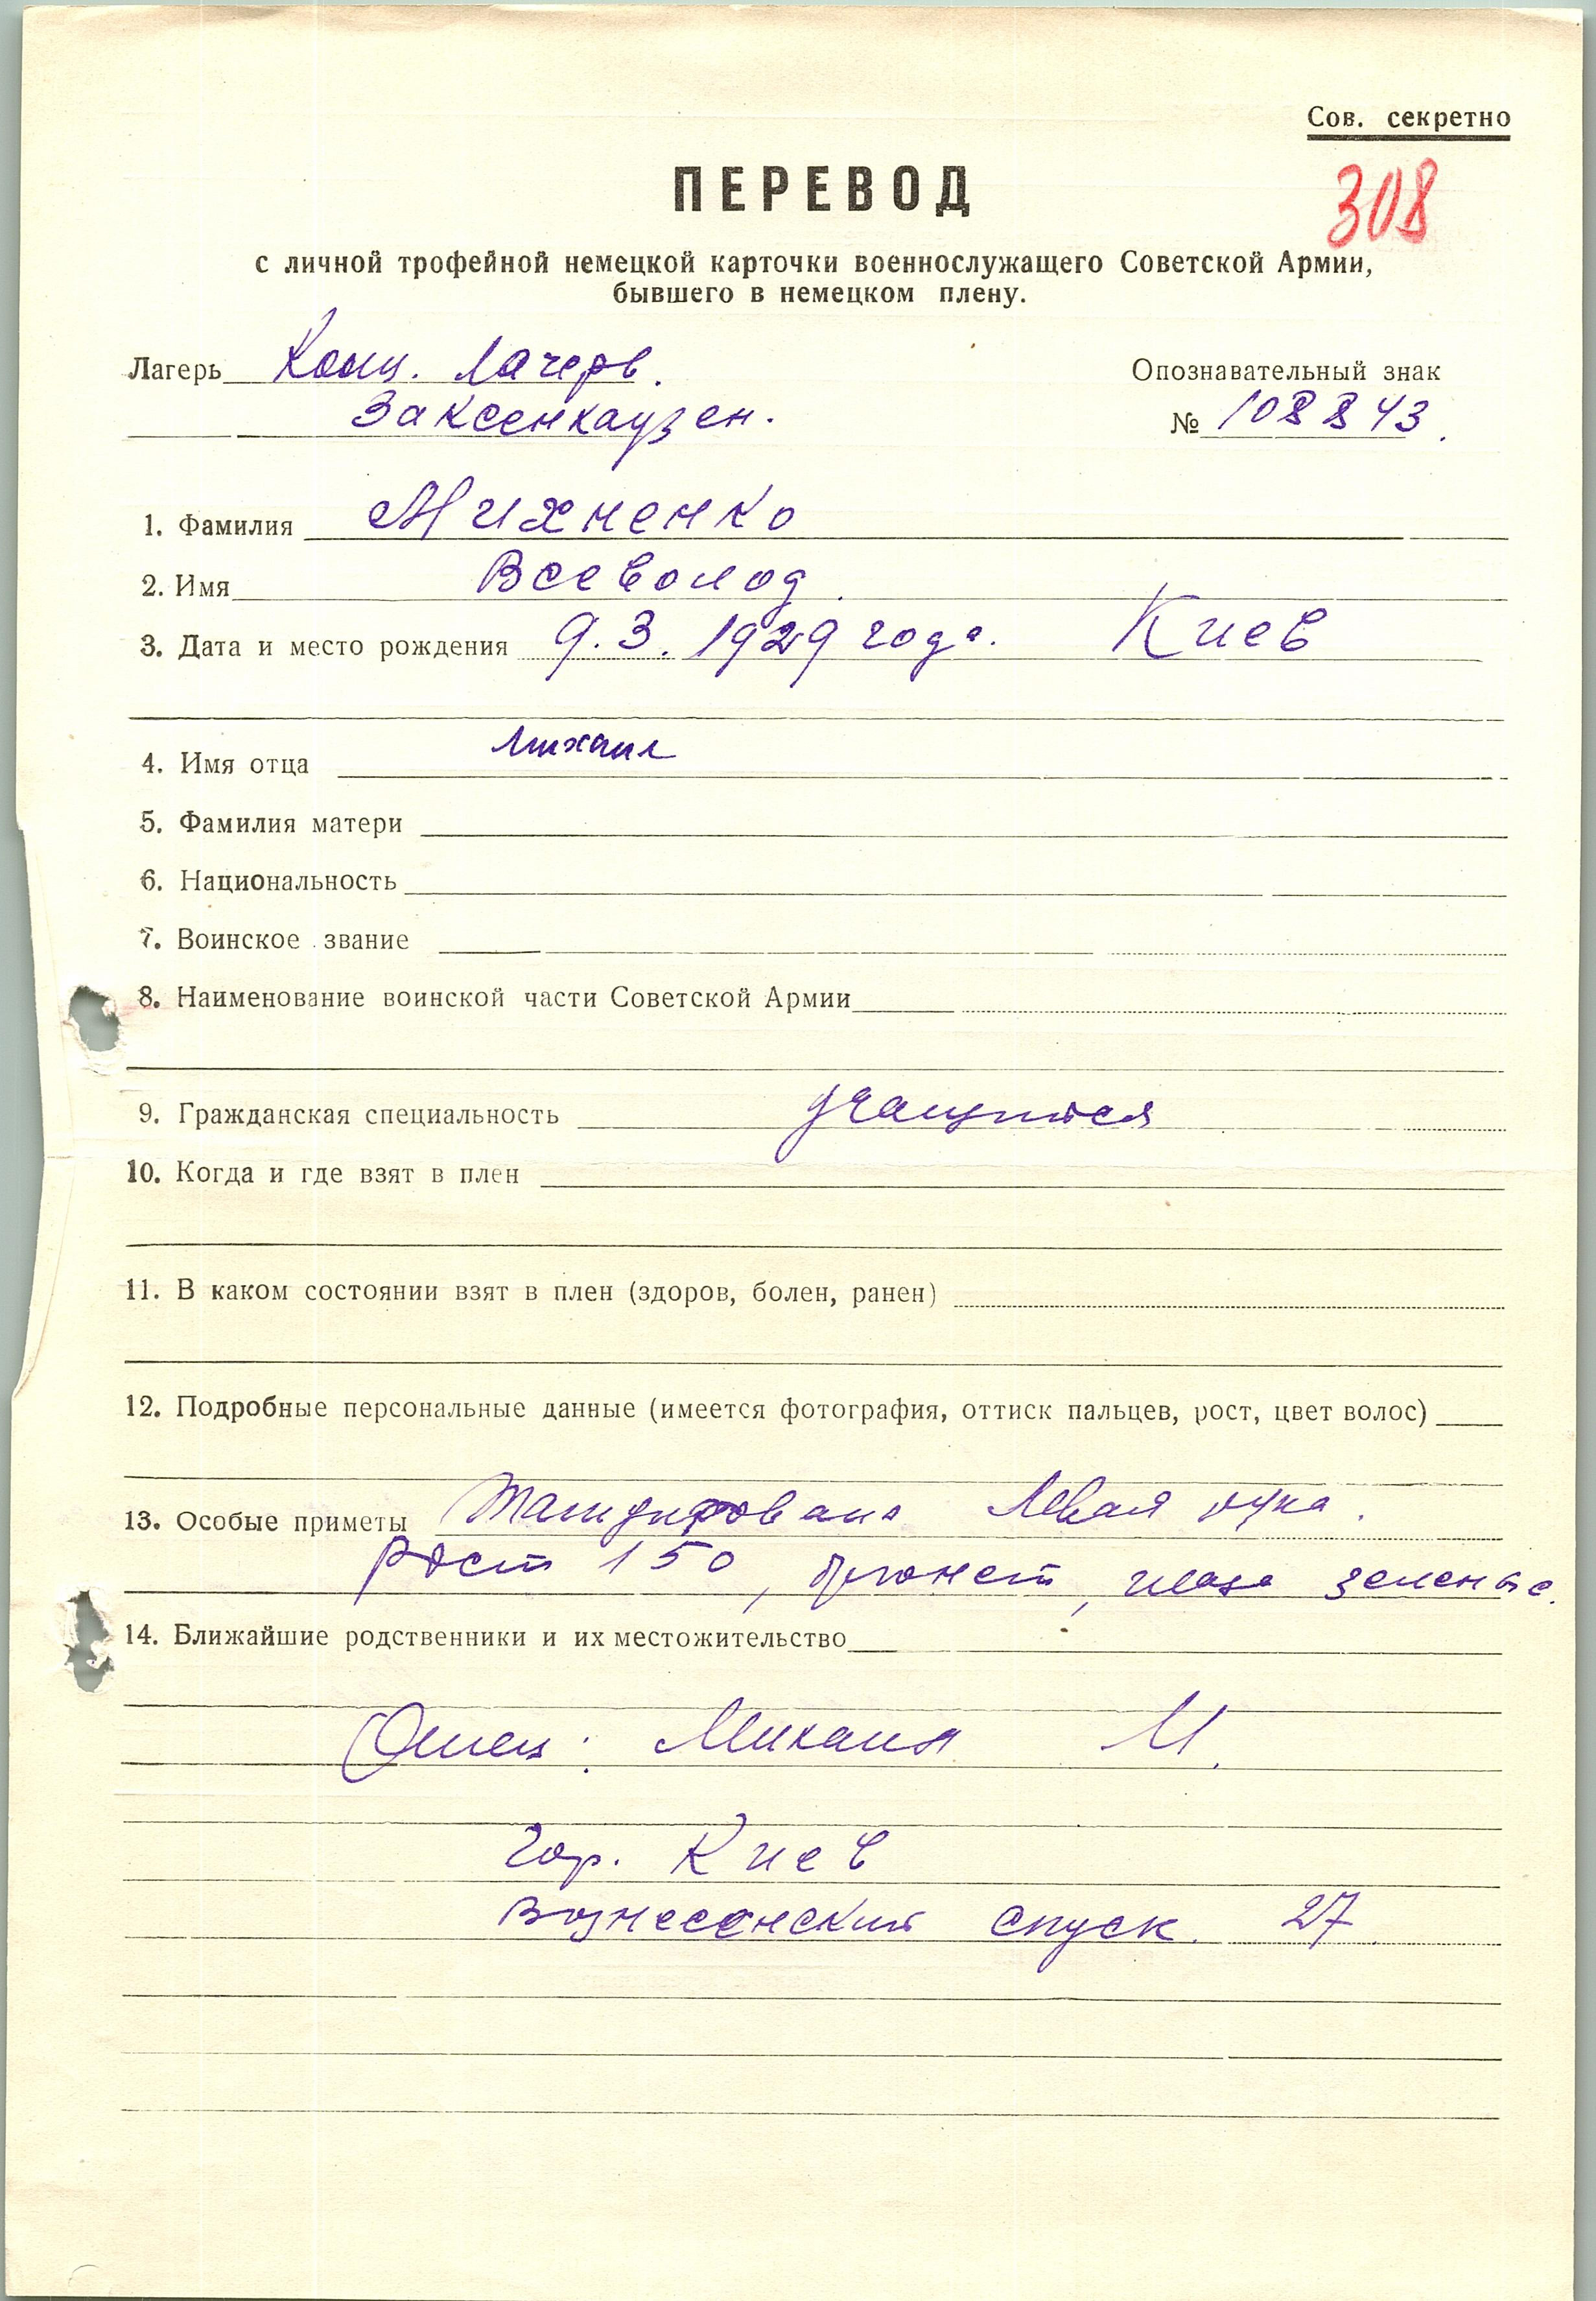 Сов. секретно
308
ПЕРЕВОД
с личной трофейной немецкой карточки военнослужащего Советской Армии,
бывшего в немецком плену.
Лагерь Конц. Лагерь.
Заксенхаузен.
Опознавательный знак
№ 108843.
1. Фамилия Михненко
2. Имя Всеволод.
3. Дата и место рождения 9.3.1929 года. Киев
4. Имя отца Михаил
5. Фамилия матери
6. Национальность
7. Воинское звание
8. Наименование воинской части Советской Армии
9. Гражданская специальность учащийся
10. Когда и где взят в плен
11. В каком состоянии взят в плен (здоров, болен, ранен)
12. Подробные персональные данные (имеется фотография, оттиск пальцев, рост, цвет волос)
13. Особые приметы Татуирована левая рука.
Рост 150, брюнет, глаза зеленые.
14. Ближайшие родственники и их местожительство
Отец: Михаил М.
Гор. Киев
Вознесенский спуск. 27.